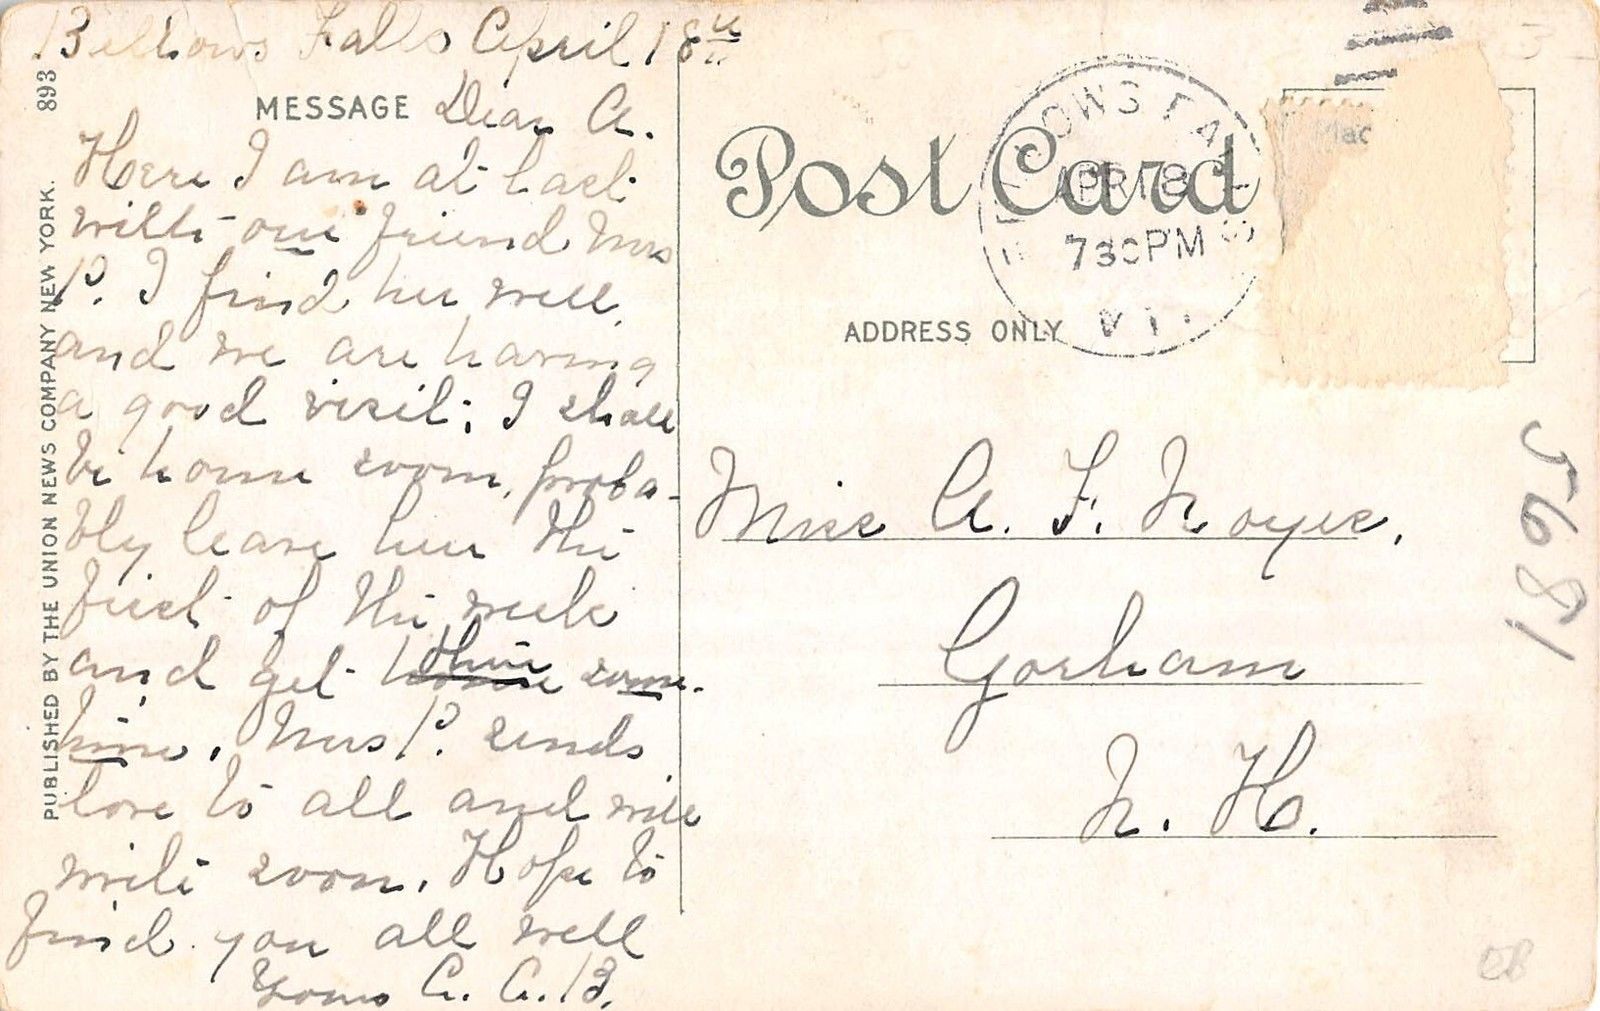 Bellows Falls April 18th
893
MESSAGE Dear A.
Here I am at last
with our friend Mrs
P. I find her well,
and we are having
a good visit; I shall
be home soon, proba-
bly leave here the
first of the week
and get home some-
time. Mrs P. sends
love to all and will
write soon. Hope to
find you all well
Yours C. A. B.
PUBLISHED BY THE UNION NEWS COMPANY NEW YORK.
Post Card
BELLOWS FALLS
APR 18
730PM
VT.
Mac
ADDRESS ONLY
Miss A. F. Noyes,
Gorham
N. H.
5681